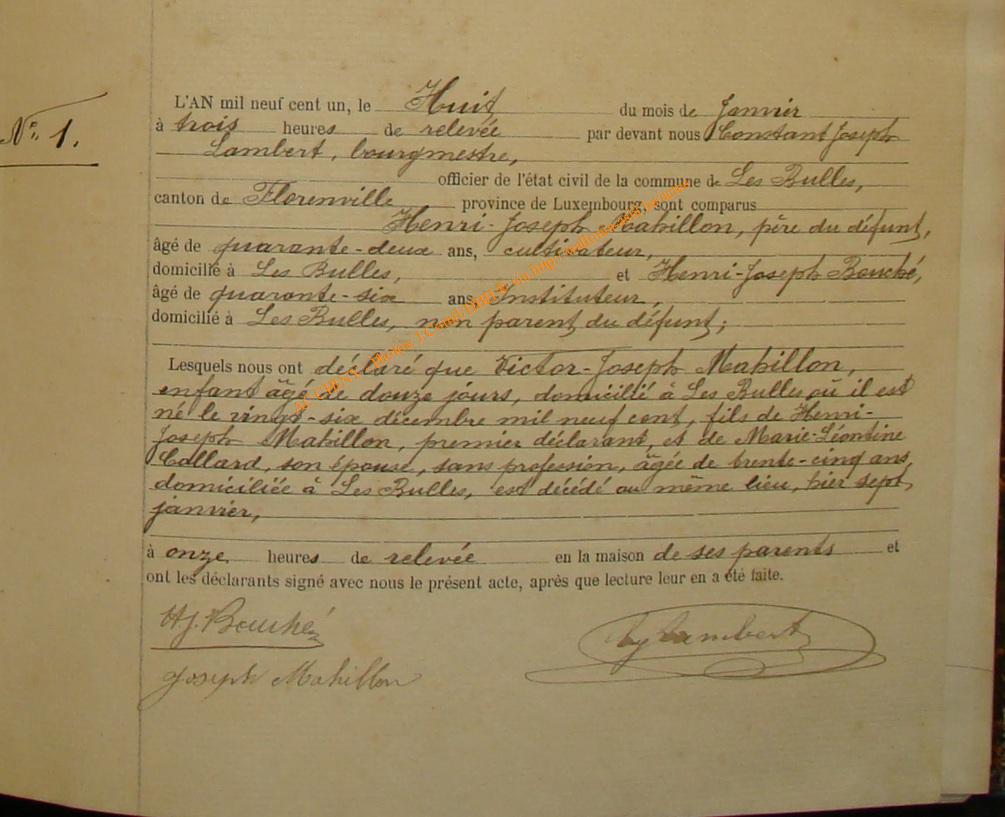 N° 1.
L'AN mil neuf cent un, le Huit du mois de Janvier
à trois heures de relevée par devant nous Constant Joseph
Lambert, bourgmestre,
officier de l'état civil de la commune de Les Bulles,
canton de Florenville province de Luxembourg, sont comparus
Henri-Joseph Mahillon, père du défunt,
âgé de quarante-deux ans, cultivateur,
domicilié à Les Bulles, et Henri-Joseph Bouché,
âgé de quarante-six ans, Instituteur,
domicilié à Les Bulles, non parent du défunt;
Lesquels nous ont déclaré que Victor-Joseph Mahillon,
enfant âgé de douze jours, domicilié à Les Bulles où il est
né le vingt-six décembre mil neuf cent, fils de Henri-
Joseph Mahillon, premier déclarant, et de Marie-Léontine
Collard, son épouse, sans profession, âgée de trente-cinq ans,
domiciliée à Les Bulles, est décédé au même lieu, hier sept
janvier,
à onze heures de relevée en la maison de ses parents et
ont les déclarants signé avec nous le présent acte, après que lecture leur en a été faite.
H.J. Bouché
Lambert
Joseph Mahillon